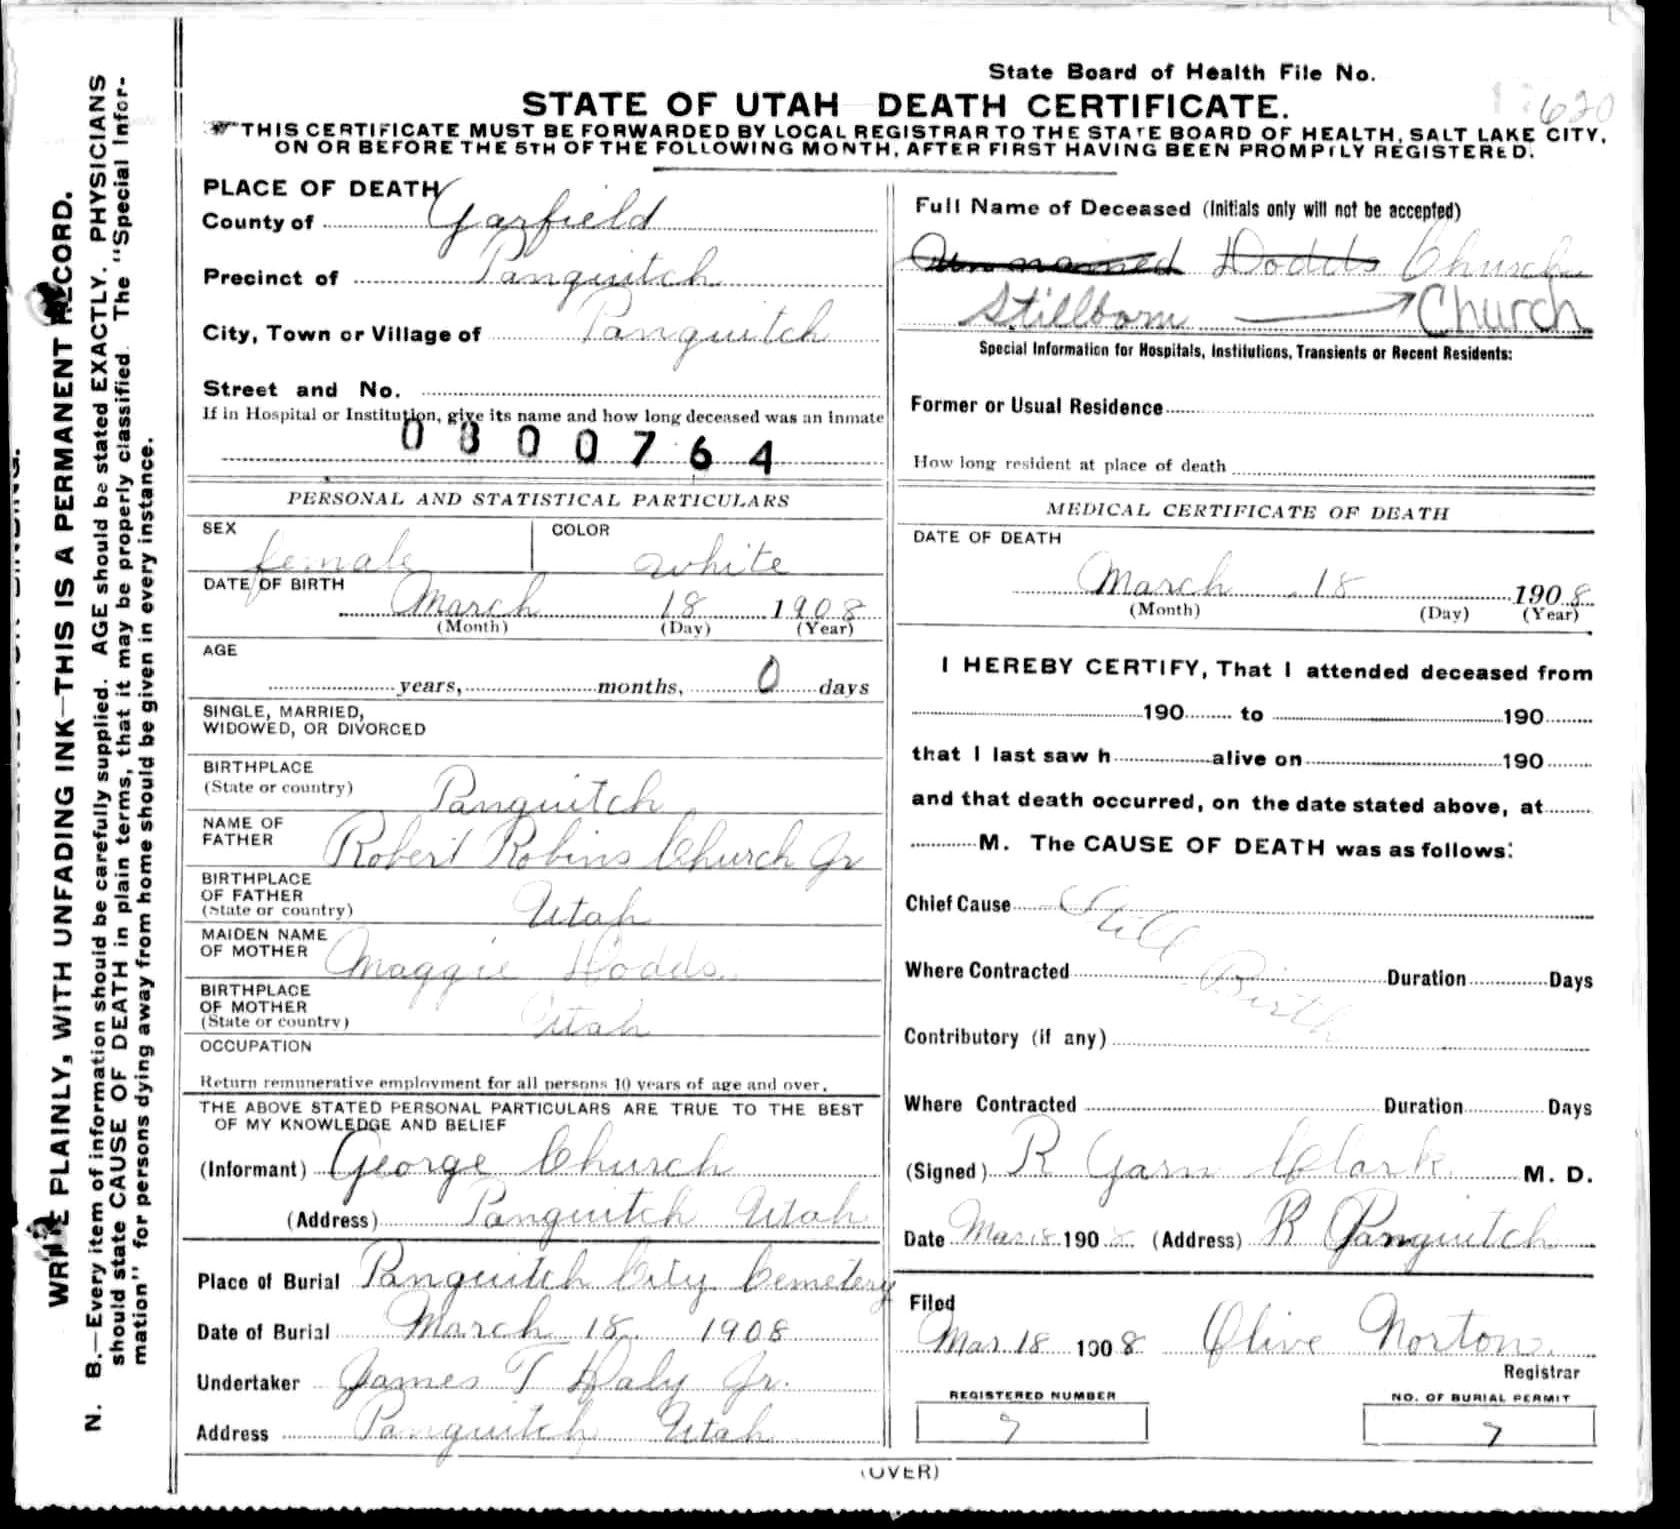 State Board of Health File No.
620
STATE OF UTAH DEATH CERTIFICATE.
THIS CERTIFICATE MUST BE FORWARDED BY LOCAL REGISTRAR TO THE STATE BOARD OF HEALTH, SALT LAKE CITY,
ON OR BEFORE THE 5TH OF THE FOLLOWING MONTH, AFTER FIRST HAVING BEEN PROMPTLY REGISTERED.
WRITE PLAINLY, WITH UNFADING INK—THIS IS A PERMANENT RECORD.
N. B.—Every item of information should be carefully supplied. AGE should be stated EXACTLY. PHYSICIANS
should state CAUSE OF DEATH in plain terms, that it may be properly classified. The "Special Infor-
mation" for persons dying away from home should be given in every instance.
PLACE OF DEATH
County of Garfield
Precinct of Panguitch
City, Town or Village of Panguitch
Street and No.
If in Hospital or Institution, give its name and how long deceased was an inmate
0300764
PERSONAL AND STATISTICAL PARTICULARS
SEX COLOR
female white
DATE OF BIRTH
March 18 1908
(Month) (Day) (Year)
AGE
years, months, 0 days
SINGLE, MARRIED,
WIDOWED, OR DIVORCED
BIRTHPLACE
(State or country) Panguitch
NAME OF
FATHER Robert Robins Church Jr
BIRTHPLACE
OF FATHER
(State or country) Utah
MAIDEN NAME
OF MOTHER Maggie Dodds
BIRTHPLACE
OF MOTHER
(State or country) Utah
OCCUPATION
Return remunerative employment for all persons 10 years of age and over.
THE ABOVE STATED PERSONAL PARTICULARS ARE TRUE TO THE BEST
OF MY KNOWLEDGE AND BELIEF
(Informant) George Church
(Address) Panguitch Utah
Place of Burial Panguitch City Cemetery
Date of Burial March 18 1908
Undertaker James T Daly Jr.
Address Panguitch Utah
Full Name of Deceased (Initials only will not be accepted)
Unnamed Dodds Church
Stillborn Church
Special Information for Hospitals, Institutions, Transients or Recent Residents:
Former or Usual Residence
How long resident at place of death
MEDICAL CERTIFICATE OF DEATH
DATE OF DEATH
March 18 1908
(Month) (Day) (Year)
I HEREBY CERTIFY, That I attended deceased from
190 to 190
that I last saw h alive on 190
and that death occurred, on the date stated above, at
M. The CAUSE OF DEATH was as follows:
Chief Cause Still
Where Contracted Birth Duration Days
Contributory (if any)
Where Contracted Duration Days
(Signed) R Garn Clark M. D.
Date Mar 18 1908 (Address) R Panguitch
Filed
Mar 18 1908 Olive Norton
Registrar
REGISTERED NUMBER NO. OF BURIAL PERMIT
7 7
(OVER)